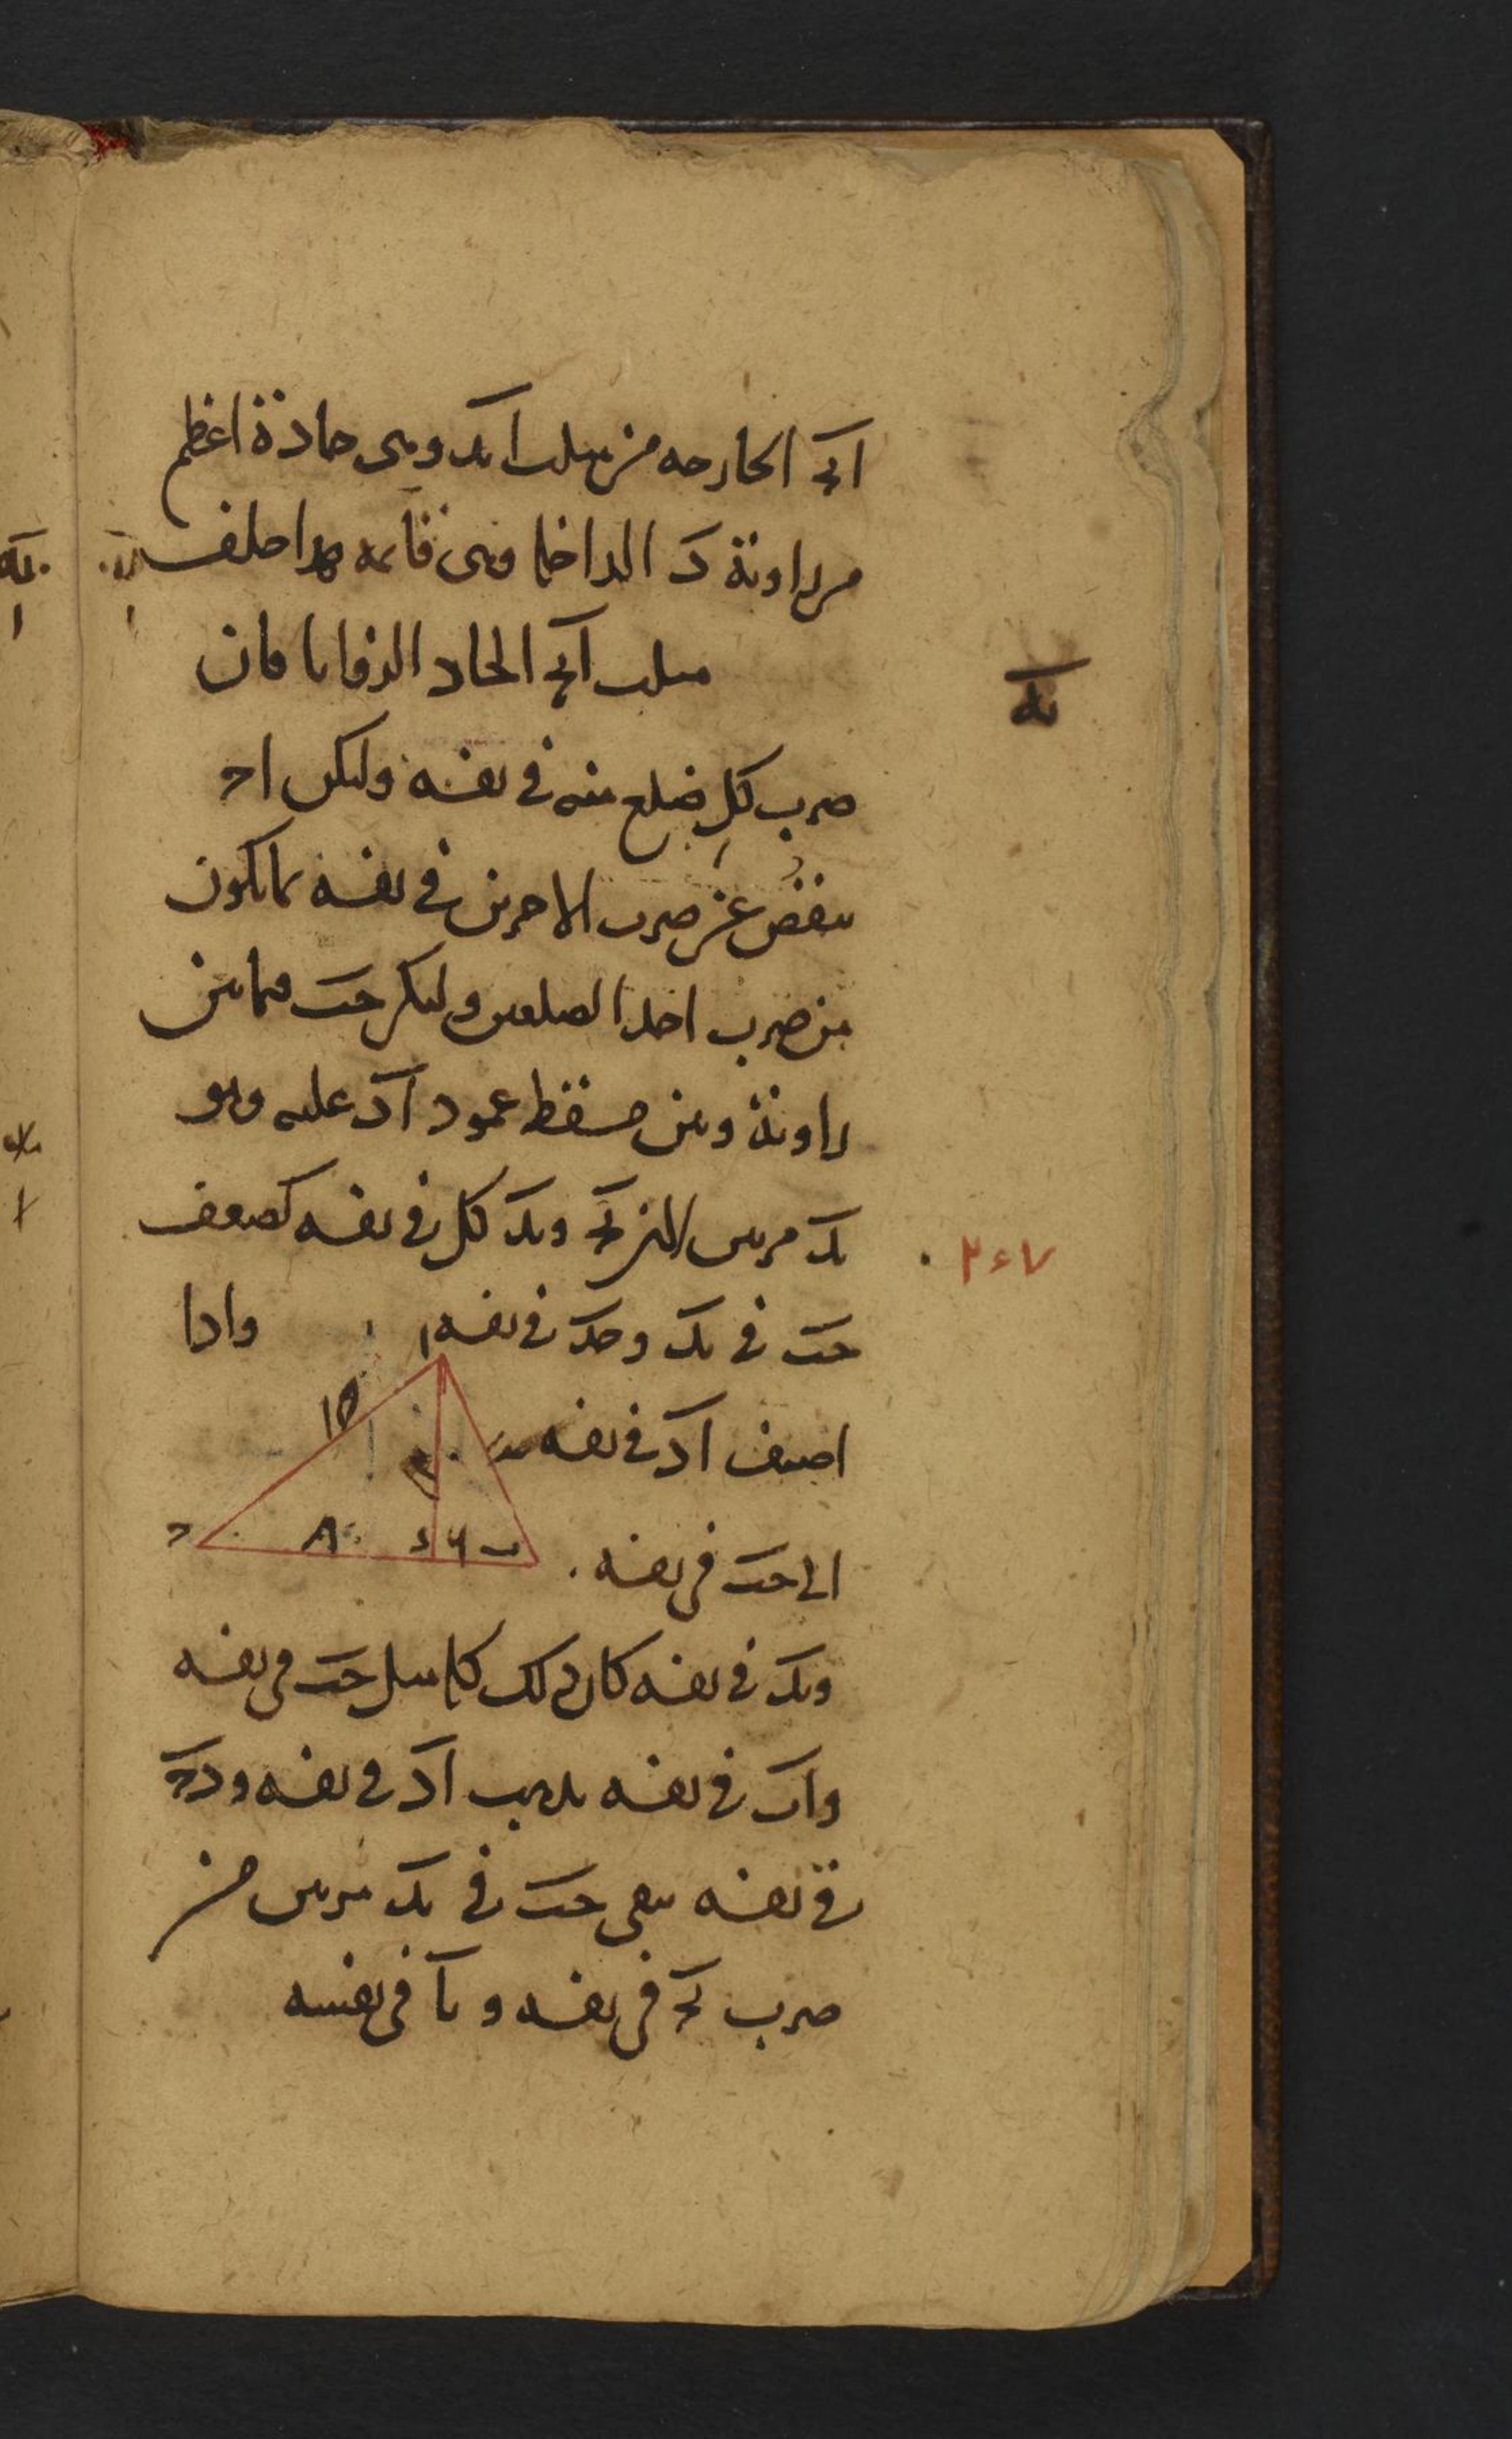 اٮح الحارحه من مثلث ابد وهى حادة اعظم
من زاوية د الداخلة وهى قائمة هذا خلف
يه
مثلث ابج الحاد الزوايا فان
ضرب كل ضلع منه فى نفسه وليكن اح
ينقص عن ضرب الاخرين فى نفسه بما يكون
من ضرب احد الضلعين وليكن حب فيما بين
زاوية وبين مسقط عمود اد عليه وهو
بد مرتين لان بح وبد كل فى نفسه كضعف
حب فى بد وحد فى نفسه واذا
اضيف اد فى نفسه
الى حب فى نفسه
وبد فى نفسه كان ذلك كله مثل حب فى نفسه
واب فى نفسه يذهب اد فى نفسه ودح
فى نفسه يبقى حب فى بد مرتين من
ضرب بح فى نفسه وبا فى نفسه
ا
ح
د
ب